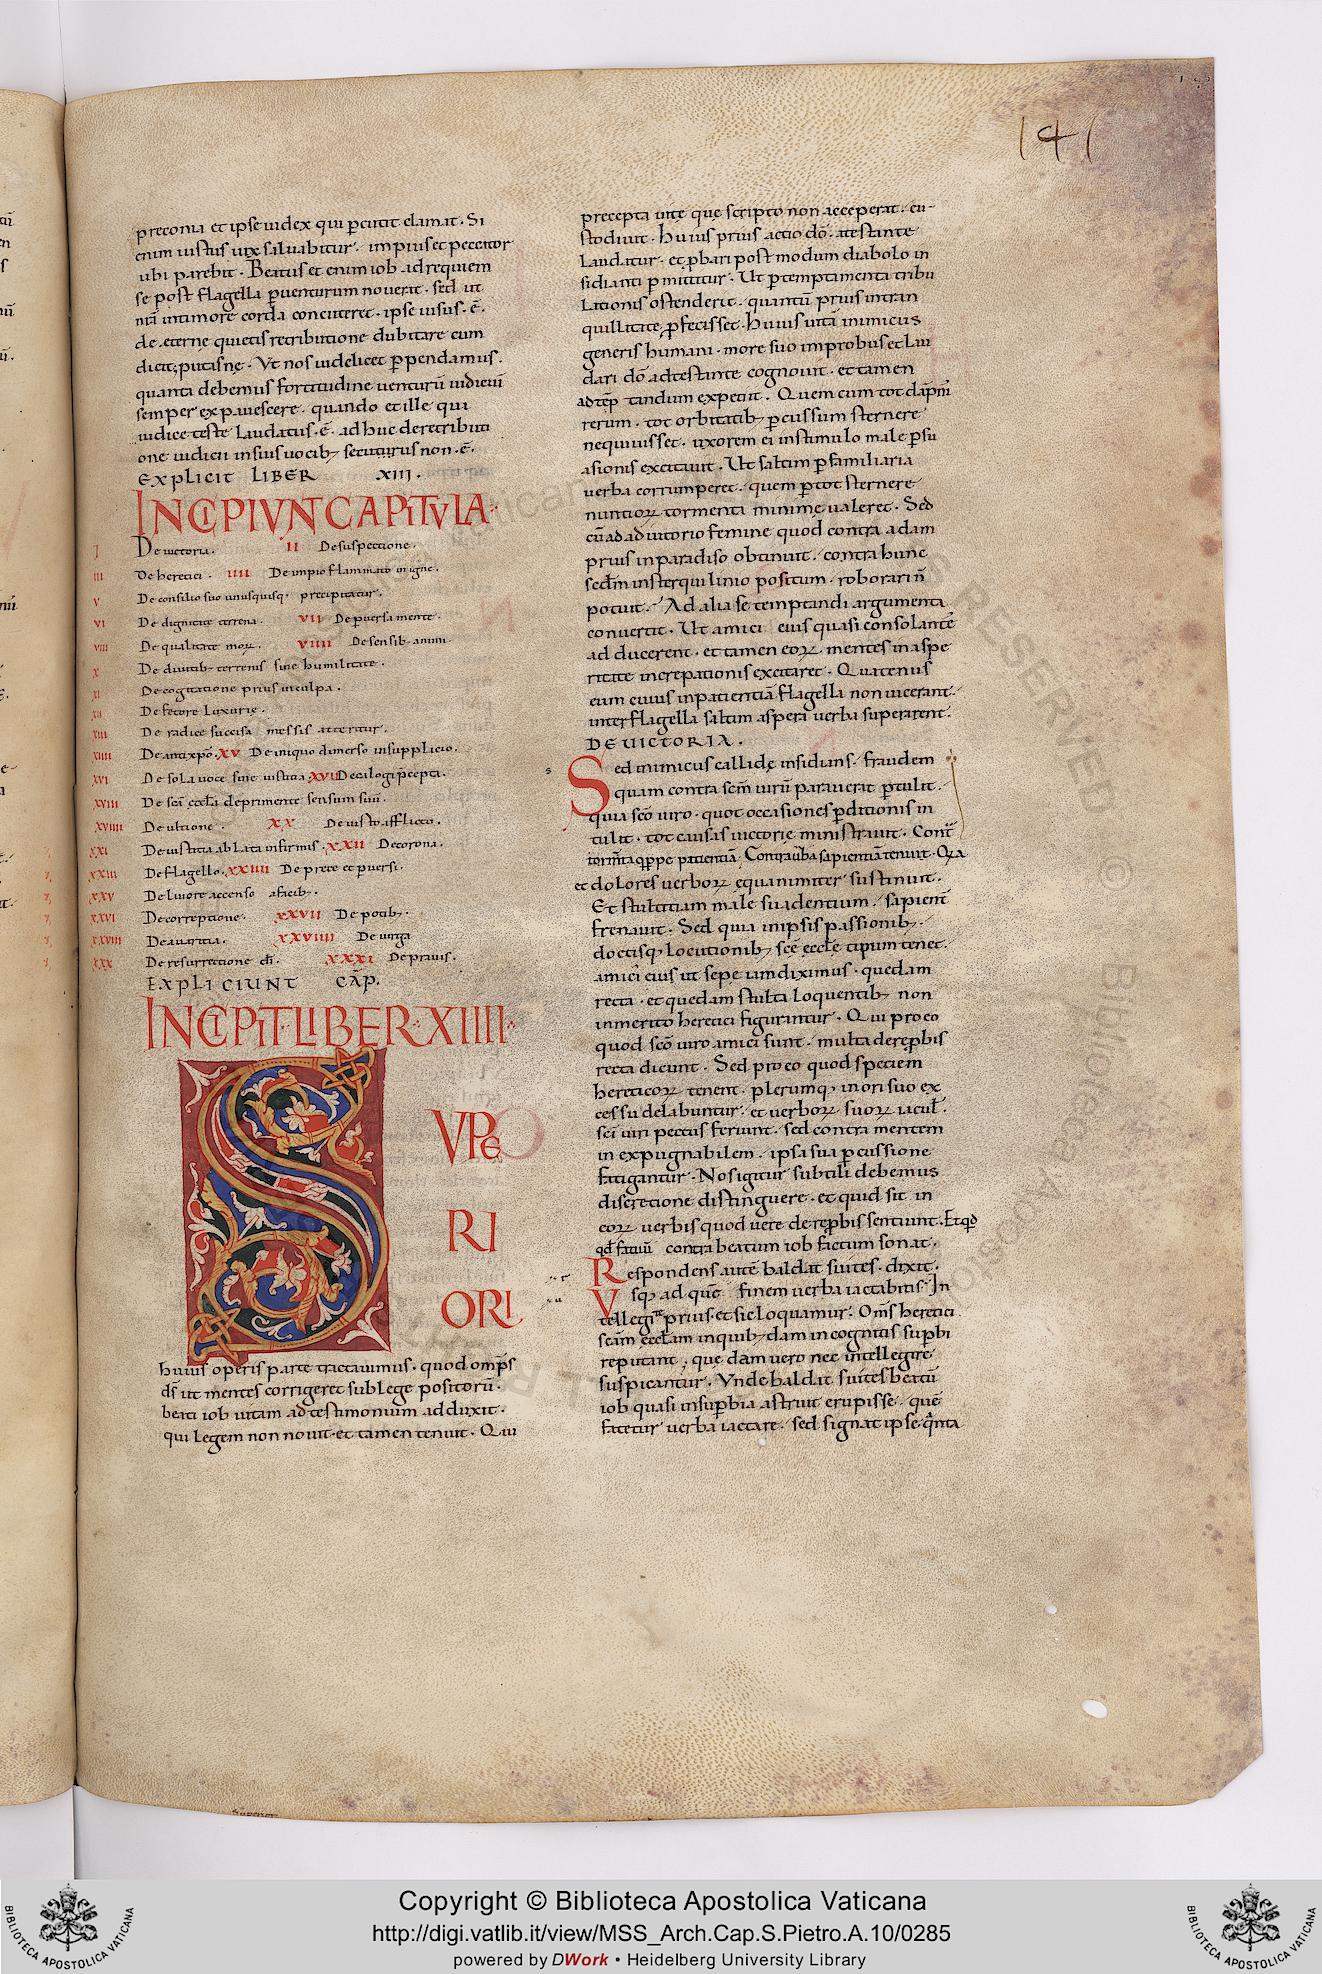 141
preconia et ipse iudex qui ꝑcutit clamat. Si
enim iustus uix saluabitur. impius et peccator
ubi parebit. Beatus et enim iob ad requiem
se post flagella ꝑuenturum nouerat. sed ut
nr̄a timore corda concuteret. ipse uisus. ē.
de. eterne quietis retributione dubitare cum
dicit; putasne. Ut nos uidelicet ꝑpendamus.
quanta debemus fortitudine uenturū iudiciū
semper expauescere. quando et ille qui
iudice teste laudatus. ē. ad huc de retributi
one iudicii in suis uocib; securus non. ē.
EXPLICIT LIBER XIII.
INCIPIVNT CAPITVLA
I De uictoria. II De suspectione.
III De heretici. IIII De impio flammato in igne.
V De consilio suo unusquisq. precipitatur.
VI De dignitate terrena. VII De ꝑuersa mente.
VIII De qualitate moꝝ. VIIII De sensib. animi.
X De diuitib. terrenis sine humilitate.
XI De cogitatione prius in culpa.
XII De fetore luxurie.
XIII De radice succisa messis atteritur.
XIIII De antixpō. XV De iniquo dimerso in supplicio.
XVI De sola uoce sine iustitia. XVII Decalogi p̄cepta.
XVIII De scī eccƚa deprimente sensum suū.
XVIIII De ultione. XX De iusto afflicto.
XXI De iustitia ablata infirmis. XXII De corona.
XXIII De flagello. XXIIII De prece et ꝑuersi.
XXV De liuore accenso a facib.
XXVI De correptione. XXVII De potib.
XXVIII De auaritia. XXVIIII De uirga
XXX De resurrectione XXXI De prauis.
EXPLICIUNT CAP̄.
INCIPIT LIBER XIIII.
SVPE
RI
ORI
huius operis parte tractauimus. quod omp̄s
d̄s ut mentes corrigeret sub lege positorū.
beati iob uitam ad testimonium adduxit.
qui legem non nouit. et tamen tenuit. Qui
precepta uite que scripto non acceperat. cu-
stodiuit. Huius prius actio dō. atestante
laudatur. et ꝓbari post modum diabolo in
sidianti ꝑmittitur. Ut ꝑ temptamenta tribu
lationis ostenderet. quantū prius in tran
quillitate ꝓfecisset. Huius uitā inimicus
generis humani. more suo improbus et lau
dari dō adtestante cognouit. et tamen
ad tēp tandum expetiit. Quem cum tot dāpnis
rerum. tot orbitatib; ꝑcussum sternere
nequiuisset. uxorem ei in stimulo male ꝑsu
asionis excitauit. Ut saltim ꝑ familiaria
uerba corrumperet. quem ꝑ tot sternere
nuntioꝝ tormenta minime ualeret. Sed
cū ad adiutorio femine quod contra adam
prius in paradiso obtinuit. contra hunc
secd̄m in sterquilinio positum. roborari n̄
potuit. Ad alia se temptandi argumenta
conuertit. Ut amici eius quasi consolantes
adducerent. et tamen eoꝝ. mentes in aspe
ritate increpationis excitaret. Quatenus
eum cuius inpatientiā flagella non uicerant.
inter flagella saltim aspera uerba superarent.
DE UICTORIA.
Sed inimicus callide insidians. fraudem
quam contra scm̄ uirū parauerat ꝑtulit.
quia scō uiro. quot occasiones ꝑditionis in
tulit. tot causas uictorie ministrauit. Cont̄
torm̄ta q̄ppe patientiā. Contra ūba sapientiā tenuit. Q͛a
et dolores uerboꝝ equanimiter sustinuit.
Et stultitiam male suadentium. sapient̄
frenauit. Sed quia in ipsis passionib;.
doctisq; locutionib; scē ecclē tipum tenet.
amici eius ut sepe iam diximus. quedam
recta. et quedam stulta loquentib; non
inmerito heretici figurantur. Qui pro eo
quod scō uiro amici sunt. multa de reꝓbis
recta dicunt. Sed pro eo quod speciem
hereticoꝝ tenent. plerumq; in ori suo ex
cessu delabuntur. et uerboꝝ suoꝝ iacul̄.
scī uiri pectus feriunt. sed contra mentem
inexpugnabilem. ipsa sua ꝑcussione
fatigantur. Nos igitur subtili debemus
discretione distinguere. et quid sit in
eoꝝ uerbis quod uere de reꝓbis sentiunt. Et qd̄
qd̄ fatuū contra beatum iob factum sonat.
Respondens autē baldat suites. dixit.
Usq; ad quē finem uerba iactabitis. In
tellegite prius. et sic loquamur. Om̄s heretici
scām eccƚam in quib; dam incognitis suꝑbi
reputant. que dam uero nec intellegere
suspicantur. Vnde baldat suites beatū
iob quasi in suꝑbia astruit erupisse. quē
fatetur uerba iactare. sed signat ipse q̄nta
Copyright © Biblioteca Apostolica Vaticana
http://digi.vatlib.it/view/MSS_Arch.Cap.S.Pietro.A.10/0285
powered by DWork • Heidelberg University Library
BIBLIOTECA APOSTOLICA VATICANA
BIBLIOTECA APOSTOLICA VATICANA